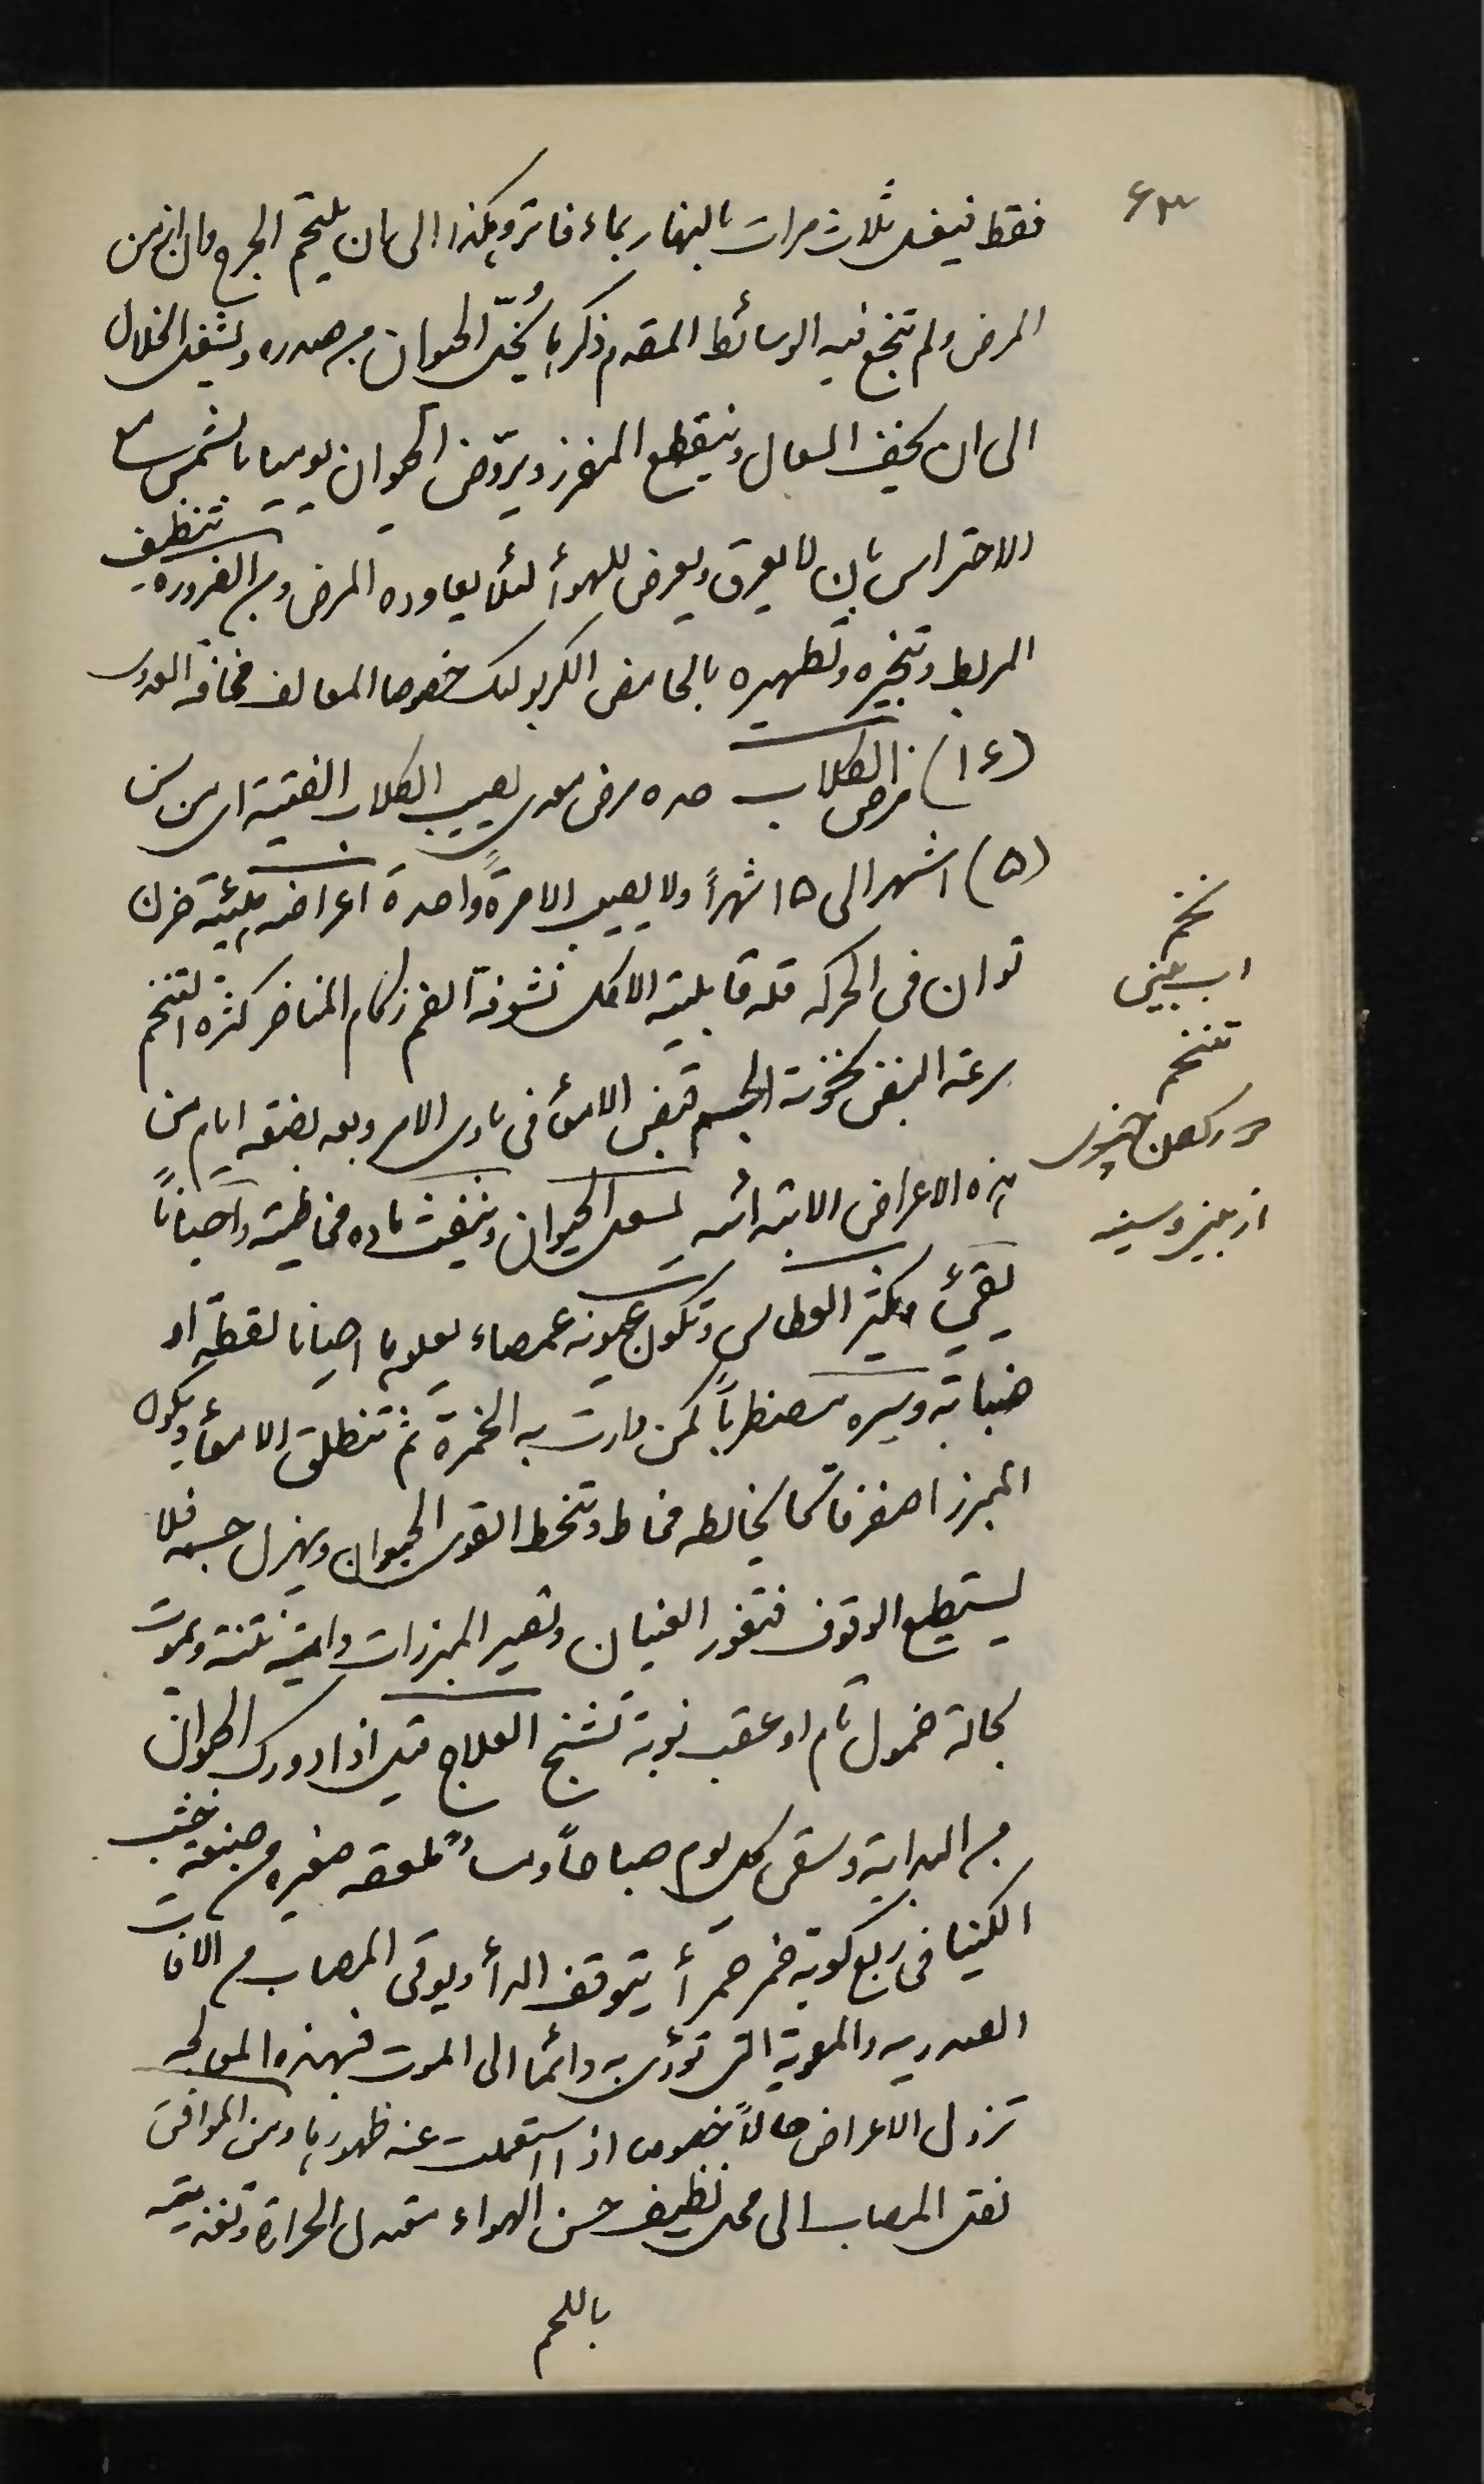 ٤٣
فقط فيغسل ثلاث مرات بالنهار بماء فاتر وهكذا الى ان يلتحم الجرح وان ازمن
المرض ولم تنجع فيه الوسائط المتقدم ذكرها يُخلّ الحيوان من صدره ويشغل الخلال
الى ان يخف السعال وينقطع المفرز ويروّض الحيوان يوميا بالشمس مع
الاحتراس بان لا يعرق ويعرض للهوأ لئلا يعاوده المرض ومن الضرورة تنظيف
المربط وتبخيره وتطهيره بالحامض الكربوليك خصوصا المعالف مخافة العدوى
(١٤) مرض الكلاب حده مرض معدى يصيب الكلاب الفتية اى من سن
(٥) اشهر الى ١٥ شهراً ولا يصيب الا مرةً واحدة اعراضه هيئة حزن
توان فى الحركه قلة قابلية الاكل نشوفة الفم زكام المناخر كثرة التنخم
سرعة النبض سخونة الجسم قبض الامعأ فى بادى الامر وبعد بضعة ايام من
هذه الاعراض الابتدائيه يسعل الحيوان وينفث ماده مخاطية واحياناً
يقيئ ويكثر العطاس وتكون عيونه عمصاء يعلوها احيانا نقطة او
ضبابة وسيره مضطرباً كمن دارت به الخمرة ثم تنطلق الامعأ ويكون
المبرز اصفر فاتحا يخالطه مخاط وتنحط القوى الحيوان ويهزل جسمه فلا
يستطيع الوقوف فتغور العينان وتصير المبرزات دامية نتنة ويموت
بحالة خمول تام او عقب نوبة تشنج العلاج قيل اذا دورك الحيوان
من البداية وسقى كل يوم صباحاً ومساءً ملعقه صغيره من صبغة خشب
الكينا فى ربع كوبة خمر حمرأ يتوقف الدأ ويوقى المصاب من الافات
الصدريه والمعوية التى تؤدى به دائما الى الموت فبهذه المعالجه
تزول الاعراض حالاً خصوصا اذا استعملت عند ظهورها ومن الموافق
نقل المصاب الى محل نظيف حسن الهواء معتدل الحرارة وتغذيته
باللحم
نخم
اب بينى
تنخم
از بينى وسينه